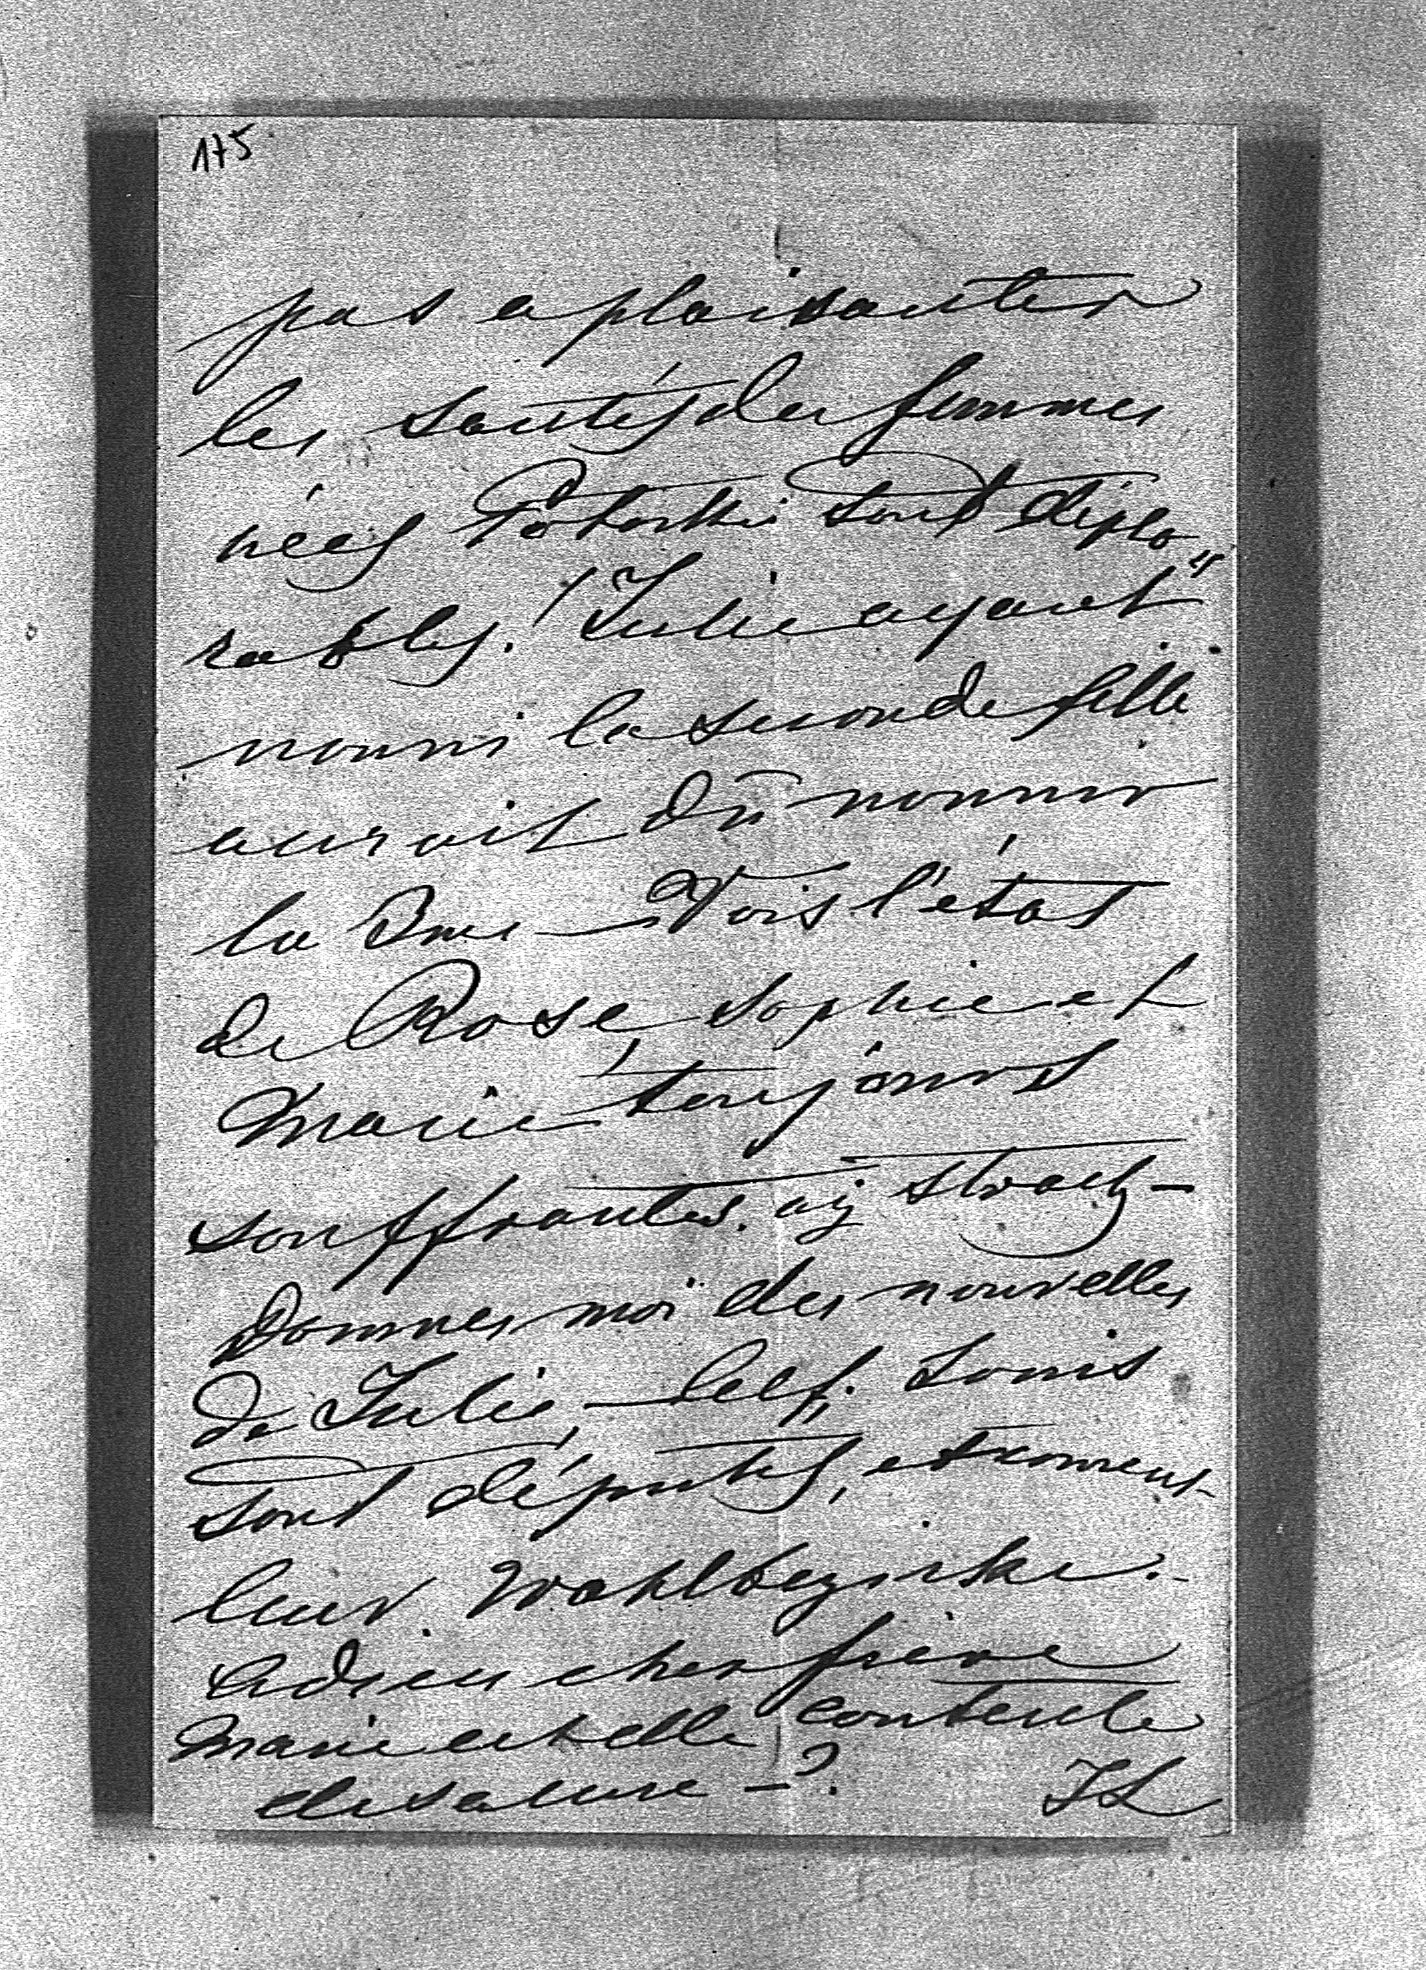 175
pas a plaisanter
les santés des femmes
nées Potocki sont déplo
rables. Julie ayant
nourri la seconde fille
aurait dû nourrir
la 3me — Vois l'état
de Rose, Sophie et
Marie toujours
souffrantes. aÿ strach —
Donnes moi des nouvelles
de Julie, — Louis
sont députés, et
leur Wahlbezirke.
Adieu cher frère
Marie est elle contente
de sa cure — ?